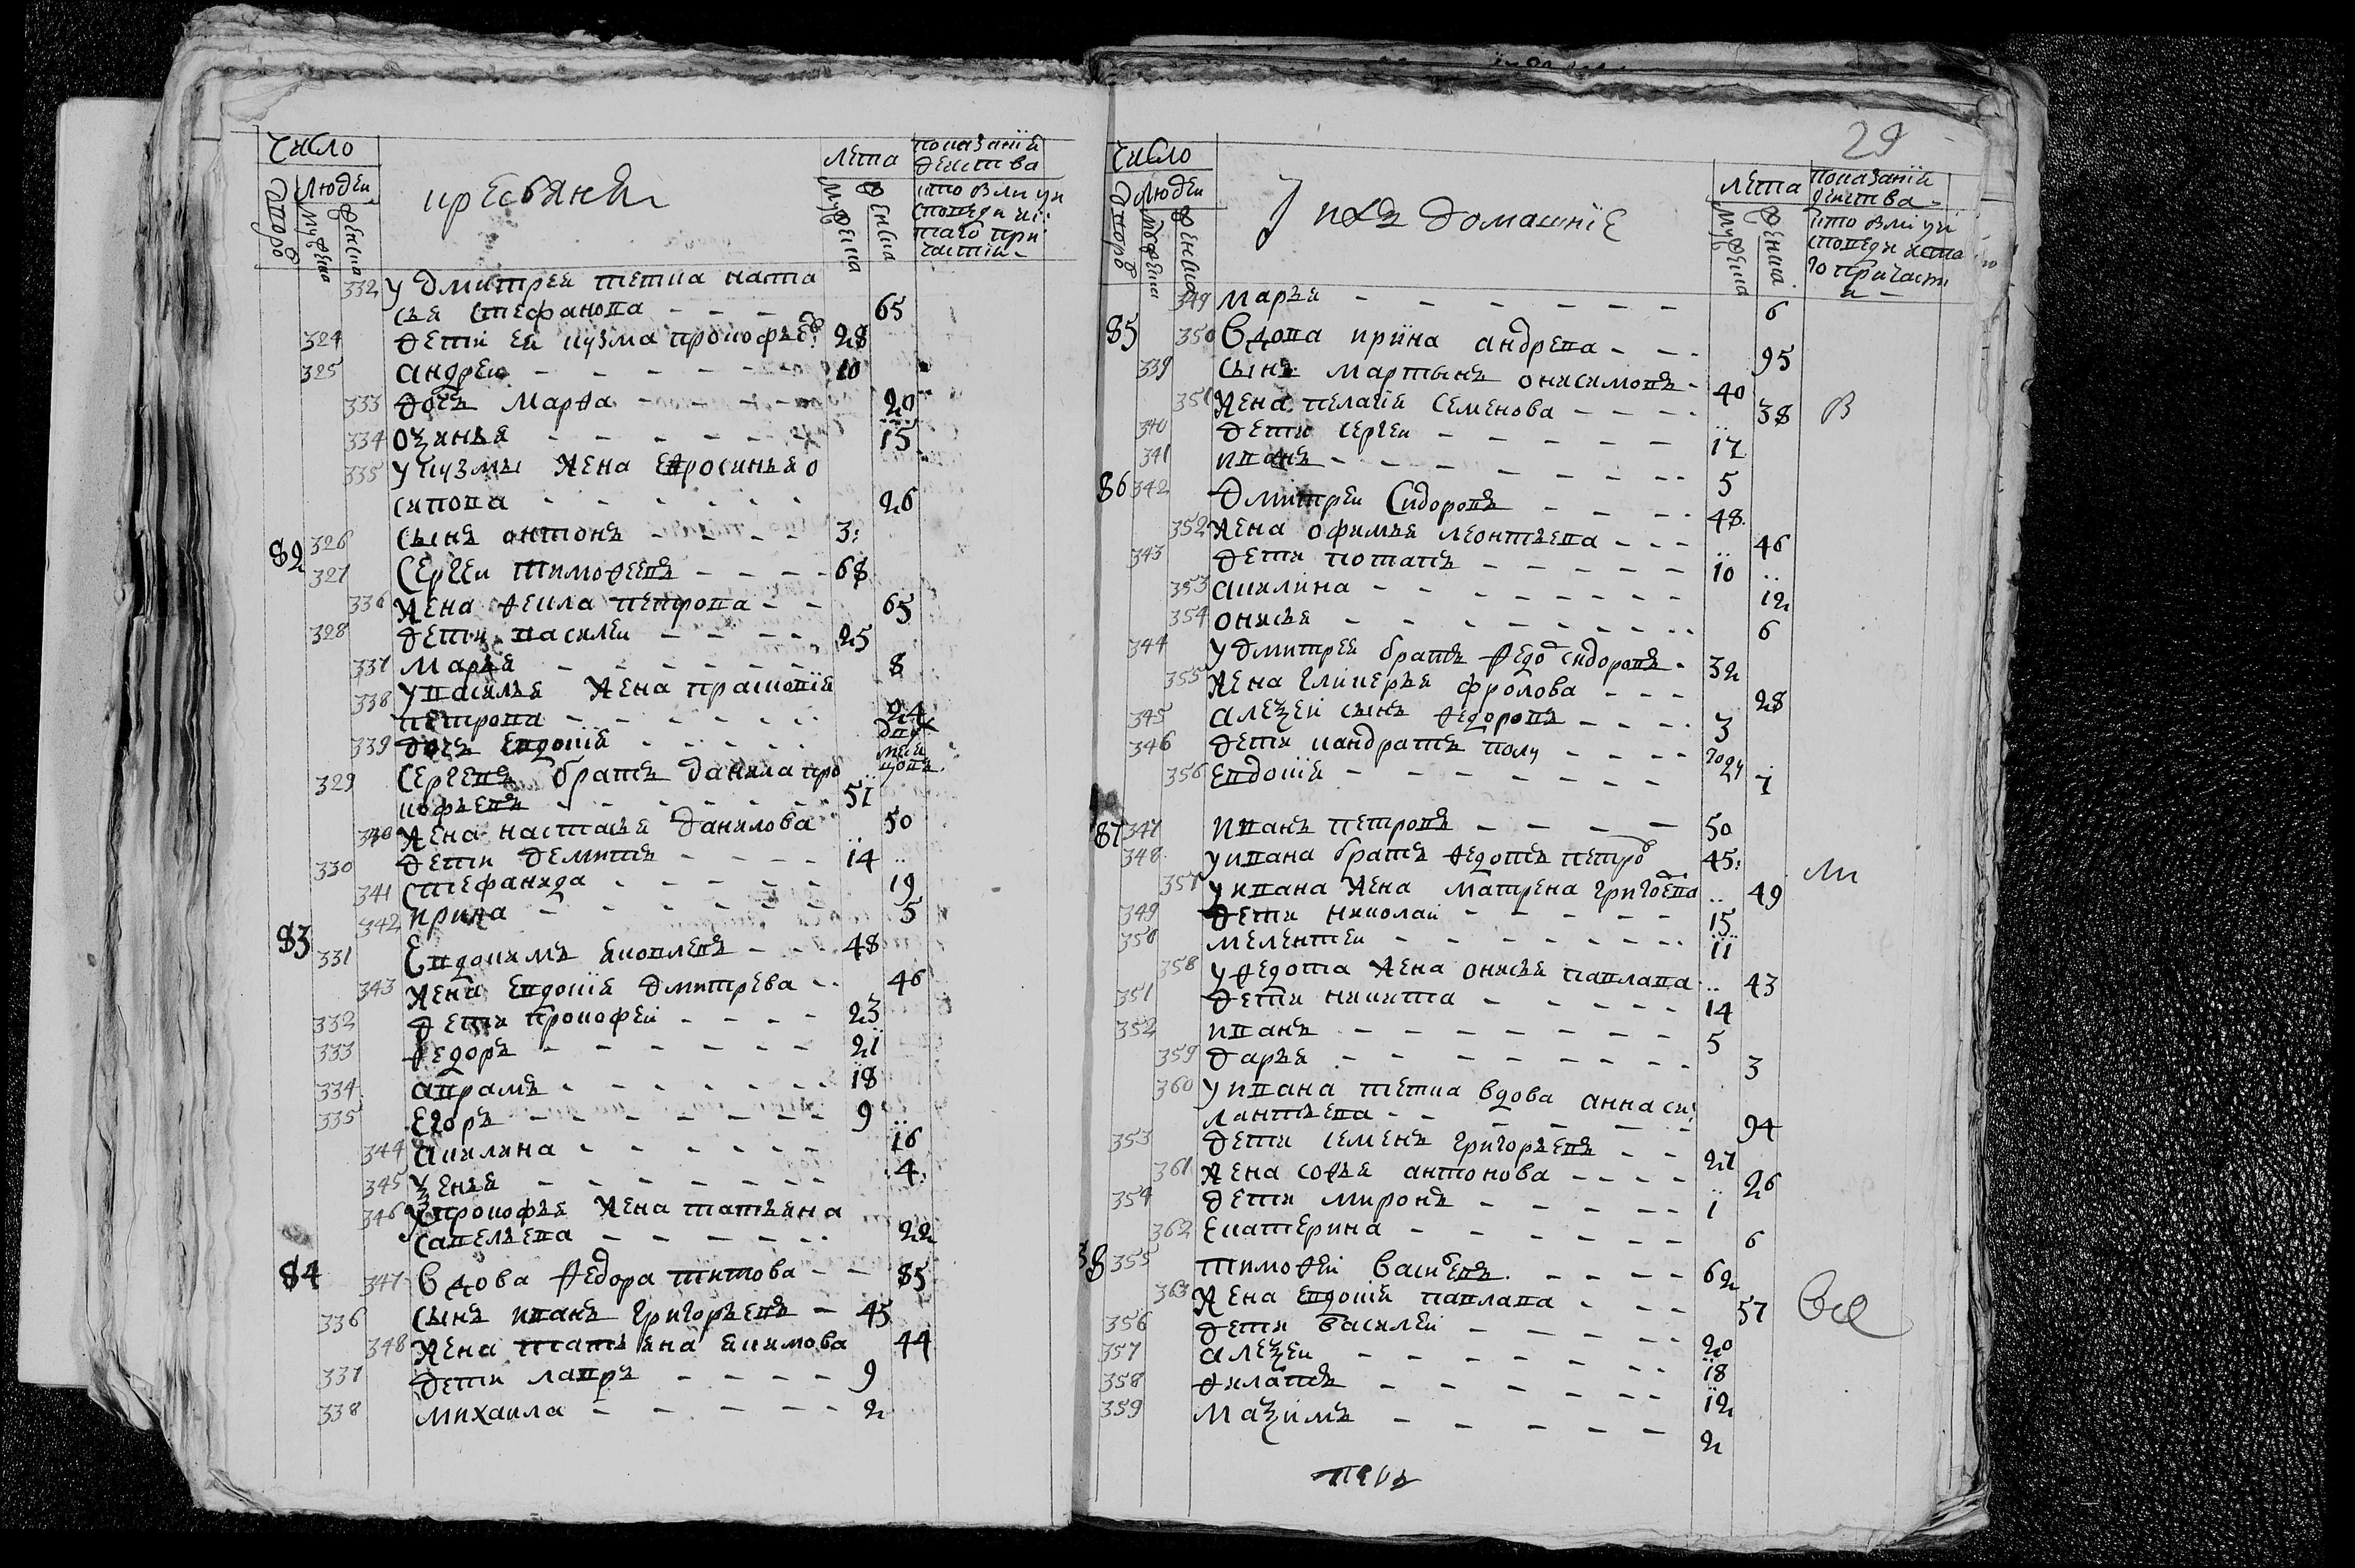 число
людей
дворо
мужеска
женска
крестьяня
лета
мужеска
женска
показаніи
действа
кто был у и
споведи и с:
таго при
частіи -
332 у дмитрея тетка наста
сья стефанова - - - 65
324 дети ея кузма прокофьев: 28
325 андреи - - - - - - 10
333 дочь марѳа - - - - - 20
334 оѯинья - - - - - - 15
335 у кузмы жена еѳросинья о
сипова - - - - - - 26
326 сынъ антонъ - - - - 3:
82 327 Сергеи тимоѳеевъ - - - - 68
336 жена ѳекла петрова - - 65
328 дети василеи - - - - 25
337 марья - - - - - - 8
338 у василья жена прасковія
петрова - - - - - - 24
339 дочь евдокія - - - - - дву
меся
цовъ
329 Сергеевъ братъ данила про
кофьевъ - - - - - - - 51
340 жена настасья данилова 50
330 дети дементъ - - - - 14
341 стефанида - - - - - 19
342 ирина - - - - - - 5
83 331 Евдокимъ яковлевъ - - - 48
343 жена евдокія дмитрева - - 46
332 дети прокофеи - - - - 23
333 ѳедоръ - - - - - - - 21
334 аврамъ - - - - - - - 18
335 егоръ - - - - - - - 9
344 акилина - - - - - - 16
345 ѯенья - - - - - - - 4:
346 у прокофья жена татьяна
савельева - - - - - - 22
84 347 вдова ѳедора титова - - 85
336 сынъ иванъ григорьевъ - 45
348 жена татьяна екимова 44
337 дети лавръ - - - - - 9
338 михаила - - - - - - 2
29
число
людей
дворовъ
мужеска
женска
И ихъ домашніе
лета
мужеска
женска
показаніи
действа -
кто был у и
споведи и ста
го причаст
и -
349 марья - - - - - - - 6
85 350 вдова ирина андрева - - - 95
339 сынъ мартынъ онисимовъ - 40
351 жена пелагія семенова - - - - 38 В
340 дети сергеи - - - - - 17
341 иванъ - - - - - - - 5
86 342 дмитреи Сидоровъ - - - - 48
352 жена офимья леонтьева - - - 46
343 дети потапъ - - - - - 10
353 акилина - - - - - - - 12
354 онисья - - - - - - - - 6
344 у дмитрея братъ ѳедо сидоровъ - 32
355 жена гликерья фролова - - - 28
345 алеѯеи сынъ ѳедоровъ - - - - 3
346 дети кандратъ полу - - - - году
356 евдокія - - - - - - - 1
87 347 иванъ петровъ - - - - 50
348 у ивана братъ ѳедотъ петро 45:
357 у ивана жена матрена григоева 49 Ли
349 дети николаи - - - - - 15
350 мелентеи - - - - - - - 11
358 у ѳедота жена онисья павлава 43
351 дети никита - - - - - 14
352 иванъ - - - - - - - 5
359 дарья - - - - - - - - 3
360 у ивана тетка вдова анна си:
лантьева - - - - - - - 94
353 дети семенъ григорьевъ - - 27
361 жена соѳья антонова - - - - 26
354 дети миронъ - - - - - 1
362 екатерина - - - - - - 6
88 355 тимоѳеи васиевъ - - - - 62
363 жена евдокія павлава - - - 57 Все
356 дети василеи - - - - - 20
357 алеѯеи - - - - - - - 18
358 ѳилатъ - - - - - - - 12
359 маѯимъ - - - - - - 2